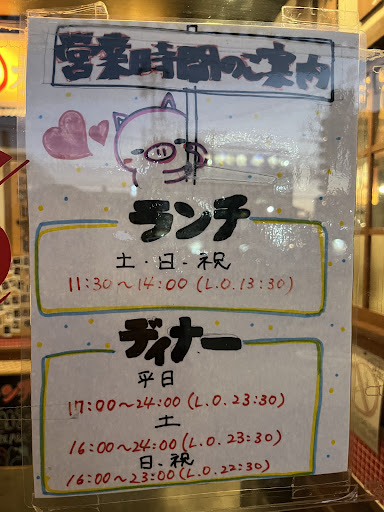 営業時間のご案内
ランチ
土・日・祝
11:30〜14:00(L.O.13:30)
ディナー
平日
17:00〜24:00(L.O.23:30)
土
16:00〜24:00(L.O.23:30)
日・祝
16:00〜23:00(L.O.22:30)